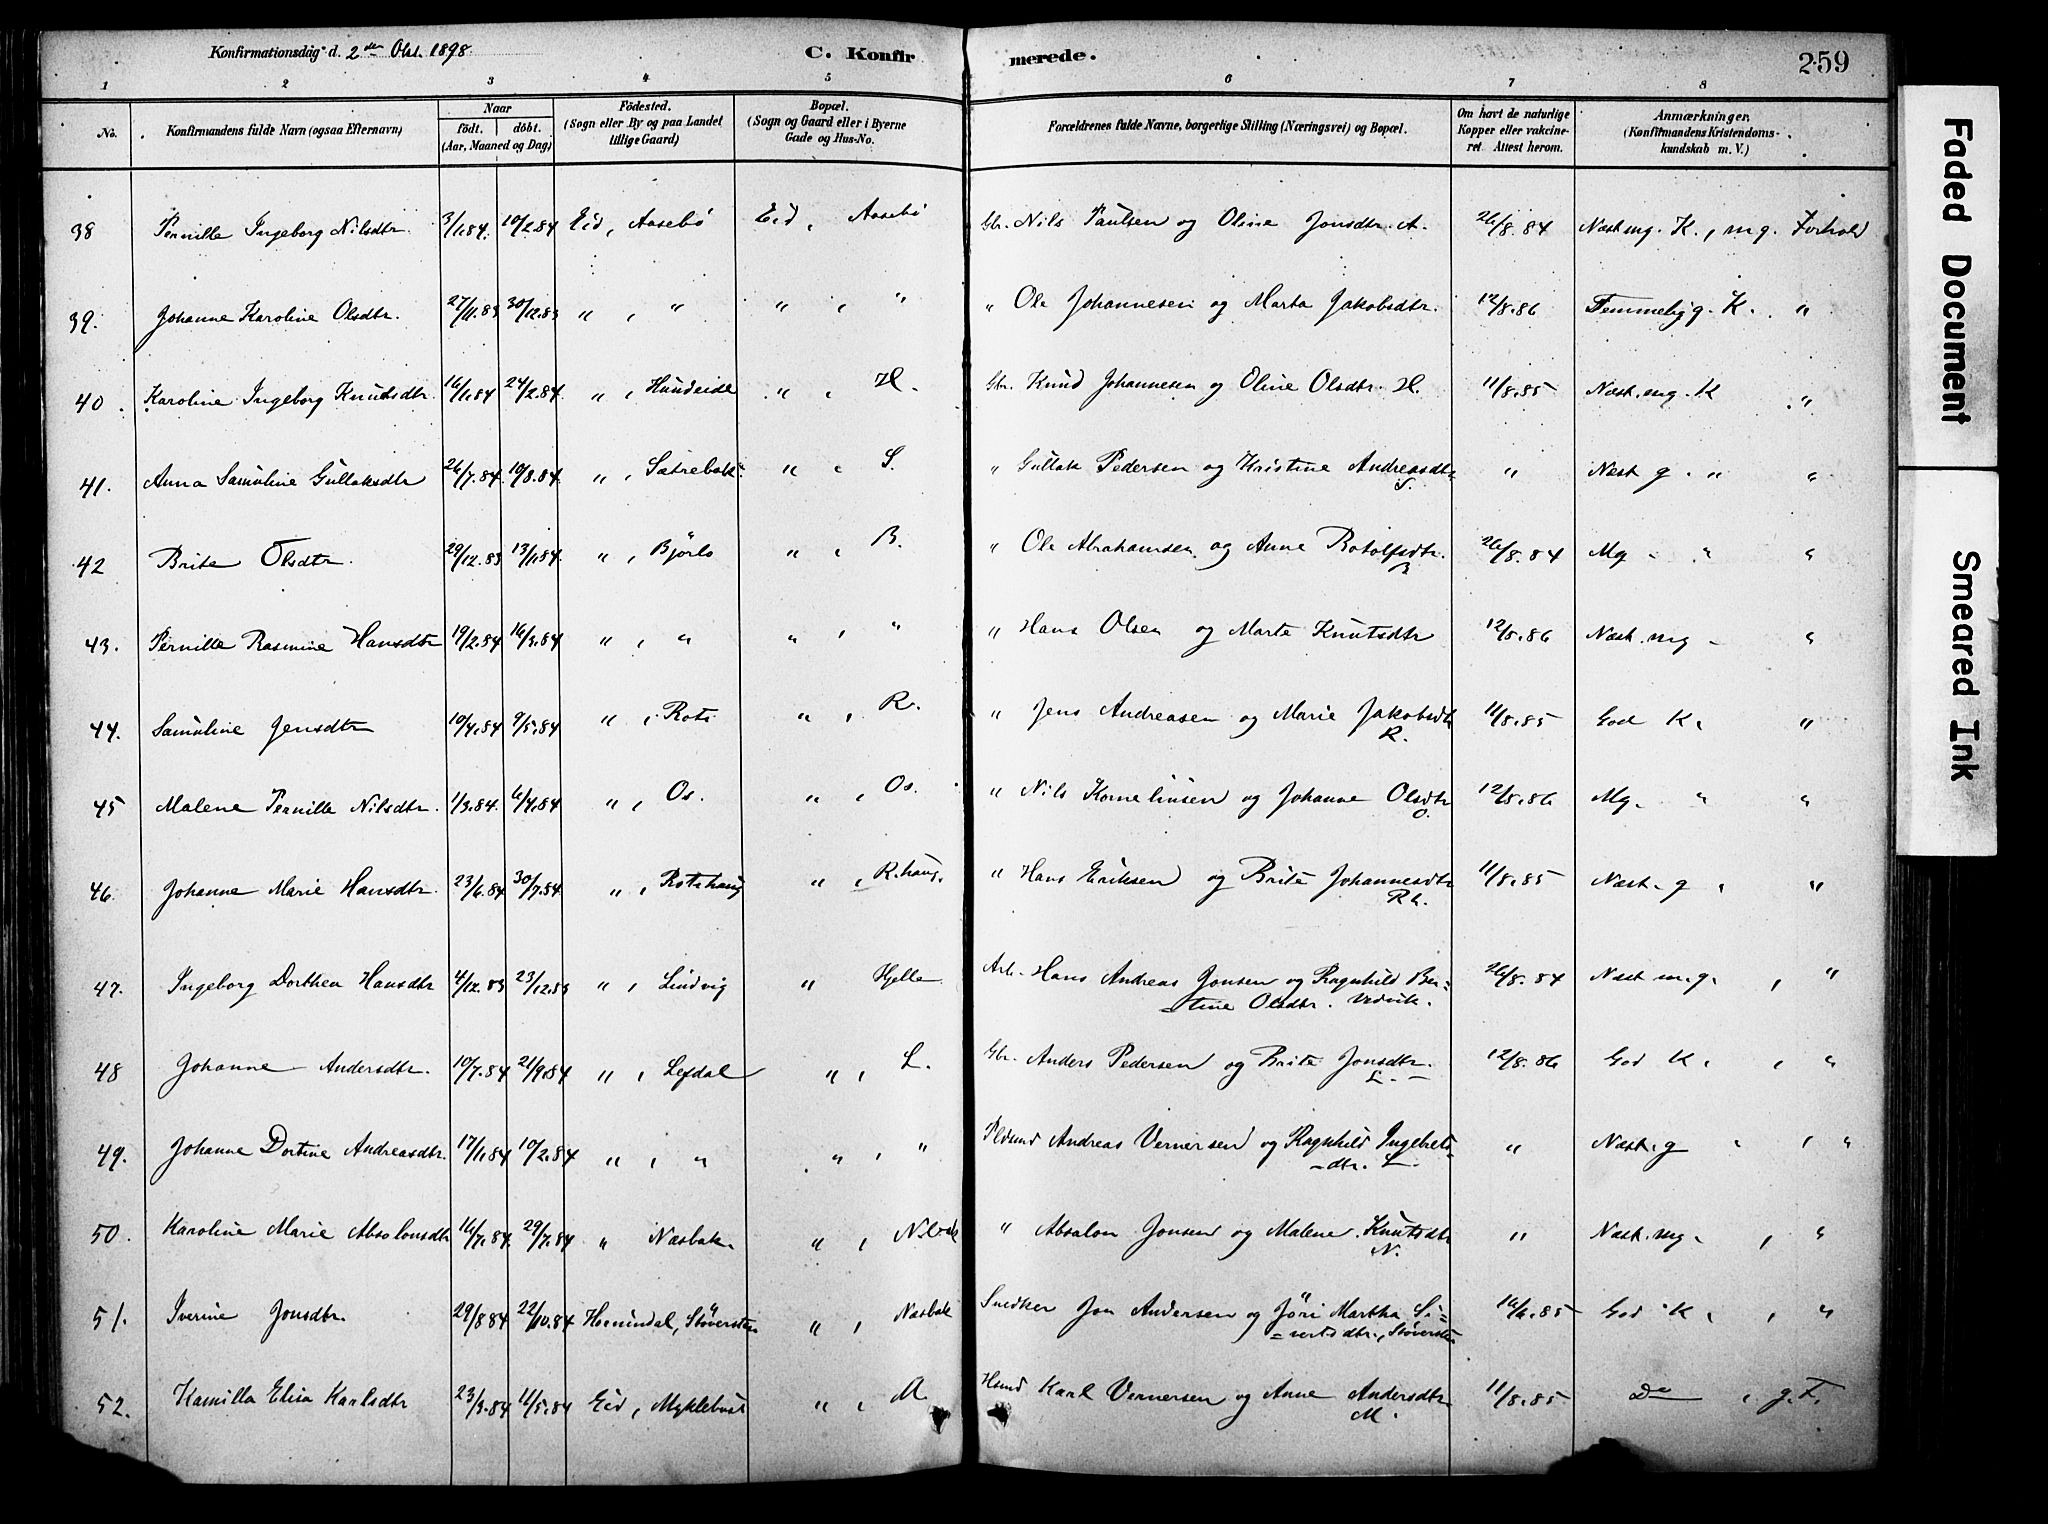 Konfirmationsdag d. 2den Okt. 1898. C. Konfirmerede. 259
1 2 3 4 5 6 7 8
No. Konfirmandens fulde Navn (ogsaa Efternavn) Naar födt. döbt. (Aar, Maaned og Dag) Födested. (Sogn eller By og paa Landet tillige Gaard) Bopæl. (Sogn og Gaard eller i Byerne Gade og Hus-No. Forældrenes fulde Navne, borgerlige Stilling (Næringsvei) og Bopæl. Om havt de naturlige Kopper eller vakcineret. Attest herom. Anmærkninger. (Konfirmandens Kristendomskundskab m. V.)
38 Pernille Ingeborg Nilsdtr. 3/1.84. 10/2.84 Eid, Aasebö Eid, Aasebö Gbr. Nils Paulsen og Oline Jonsdtr. A. 26/8.84 Næst mg. K., mg. Forhold
39. Johanne Karoline Olsdtr. 27/11.83 30/12.83 " , " " , " " Ole Johannesen og Marta Jakobsdtr. 12/8.86 Temmelig g. K. "
40. Karoline Ingeborg Knutsdtr 16/1.84 24/2.84 " , Hundeide " , H. Gbr. Knud Johannesen og Oline Olsdtr. H. 11/8.85 Næst. mg. K "
41. Anna Samuline Gullaksdtr 26/7.84 10/8.84 " , Sætrebak " , S. " Gullak Pedersen og Kristine Andreasdtr S. " Næst g. " "
42 Brite Olsdtr. 29/12.83 13/1.84. " , Bjørlo " , B. " Ole Abrahamsen og Anne Rotolfsdtr. B 26/8.84 Mg. " "
43. Pernille Rasmine Hansdtr 19/2.84 16/3.84 " , " " , " " Hans Olsen og Marte Knutsdtr 12/8.86 Næst. mg - "
44. Samuline Jensdtr 10/4.84 9/5.84 " , Rots " , R. " Jens Andreasen og Marie Jakobsdtr R. 11/8.85 God K. "
45 Malene Pernille Nilsdtr. 1/3.84. 6/4.84 " , Os. " , Os. " Nils Kornelinsen og Johanne Olsdtr O. 12/8.86 Mg. " "
46. Johanne Marie Hansdtr. 23/6.84 30/7.84 " , Rotshaug " , R.haug. " Hans Eriksen og Brite Johannesdtr Rh. 11/8.85 Næst. g , "
47. Ingeborg Dorthea Hansdtr 4/12.83 23/12.83 " , Lindvig " Hjelle Arb. Hans Andreas Jonsen og Ragnhild Ber=
=tine Olsdtr. Vedvik. 26/8.84 Næst m.g. , "
48 Johanne Andersdtr. 10/7.84 21/9.84 " , Lefdal " , L. Gbr. Anders Pedersen og Brite Jonsdtr. L. 12/8.86 God K. , "
49. Johanne Dortine Andreasdtr. 17/1.84 10/2.84 " , " " , " Pldsmd Andreas Vernersen og Ragnhild Ingebrets-
-dtr. L. " Næst. g " , "
50. Karoline Marie Absolonsdtr 16/7.84. 29/7.84 " Næsbak. " , N.bak " Absalon Jonsen og Malene Knutsdtr N. " Næst. mg - , "
51. Iverine Jonsdtr. 29/8.84 22/10.84 Hornindal, Støversten " , Næsbak Snedker Jon Andersen og Jøri Martha Si=
=vertsdtr., Støversten 16/6.85 God K , , "
52. Kamilla Elisa Karlsdtr 23/3.84 11/5.84 Eid, Myklebust " , M. Husmd Karl Vernersen og Anne Andersdtr M. 11/8.85 Do , g. F.
Faded Document
Smeared Ink